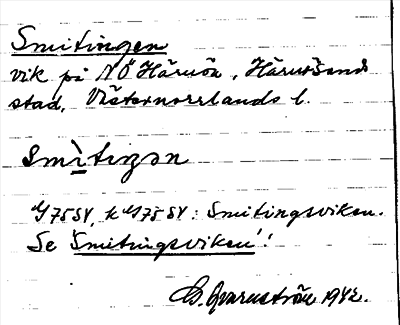 Smitingen
vik på NÖ Härnön, Härnösands
stad, Västernorrlands l.
smì̱tiŋən
G 75 SV, k G 75 SV: Smitingsviken.
Se Smitingsviken!
Qvarnström 1942.